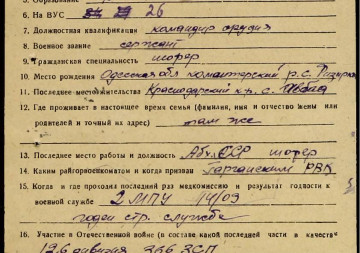 6. На ВУС 26
7. Должностная квалификация командир орудия
8. Военное звание сержант
9. Гражданская специальность шофер
10. Место рождения Одесская обл р. с.
11. Последнее местожительства Краснодарский кр. с.
12. Где проживает в настоящее время семья (фамилия, имя и отчество жены или
родителей и точный их адрес) там же
13. Последнее место работы и должность Абх. шофер
14. Каким райгорвоенкоматом и когда призван РВК
15. Когда и где проходил последний раз медкомиссию и результат годности к
военной службе 2 МПУ 19/03
годен стр. службе
16. Участие в Отечественной войне (в составе какой последней части и в качестве
126 дивизия 366 ЗСП